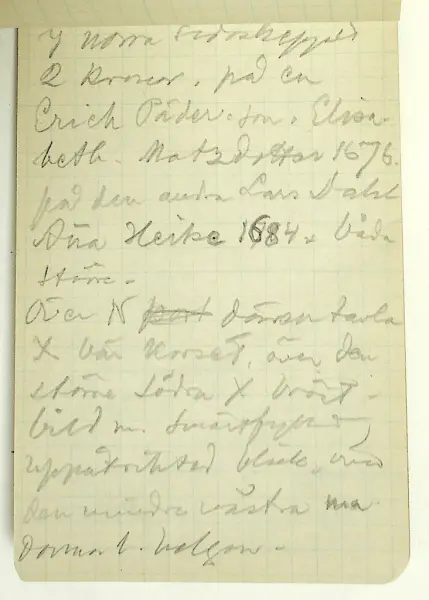 I norra sidoskeppet
2 kronor, på en
Erich Päder-son, Elisa-
beth. Matzdotter 1676.
på den andra Lars Dahl
Aña Heike 1684 båda
större.
över N port dörren tavla
X bär Korset, över den
större södra X bröst-
bild m. smärtfylld
uppåtriktad blick, över
den mindre västra ma
donna t. volgon.